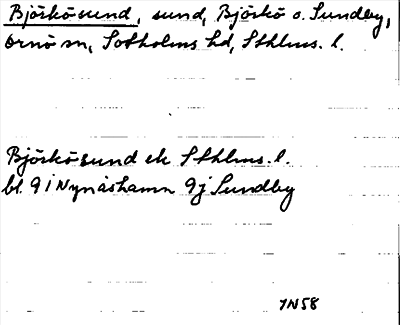 Björkösund, sund, Björkö o. Sundby,
Ornö sn, Sotholms hd, Sthlms. l.
Björkösund ek Sthlms. l.
bl. 9 i Nynäshamn 9j Sundby
JN58